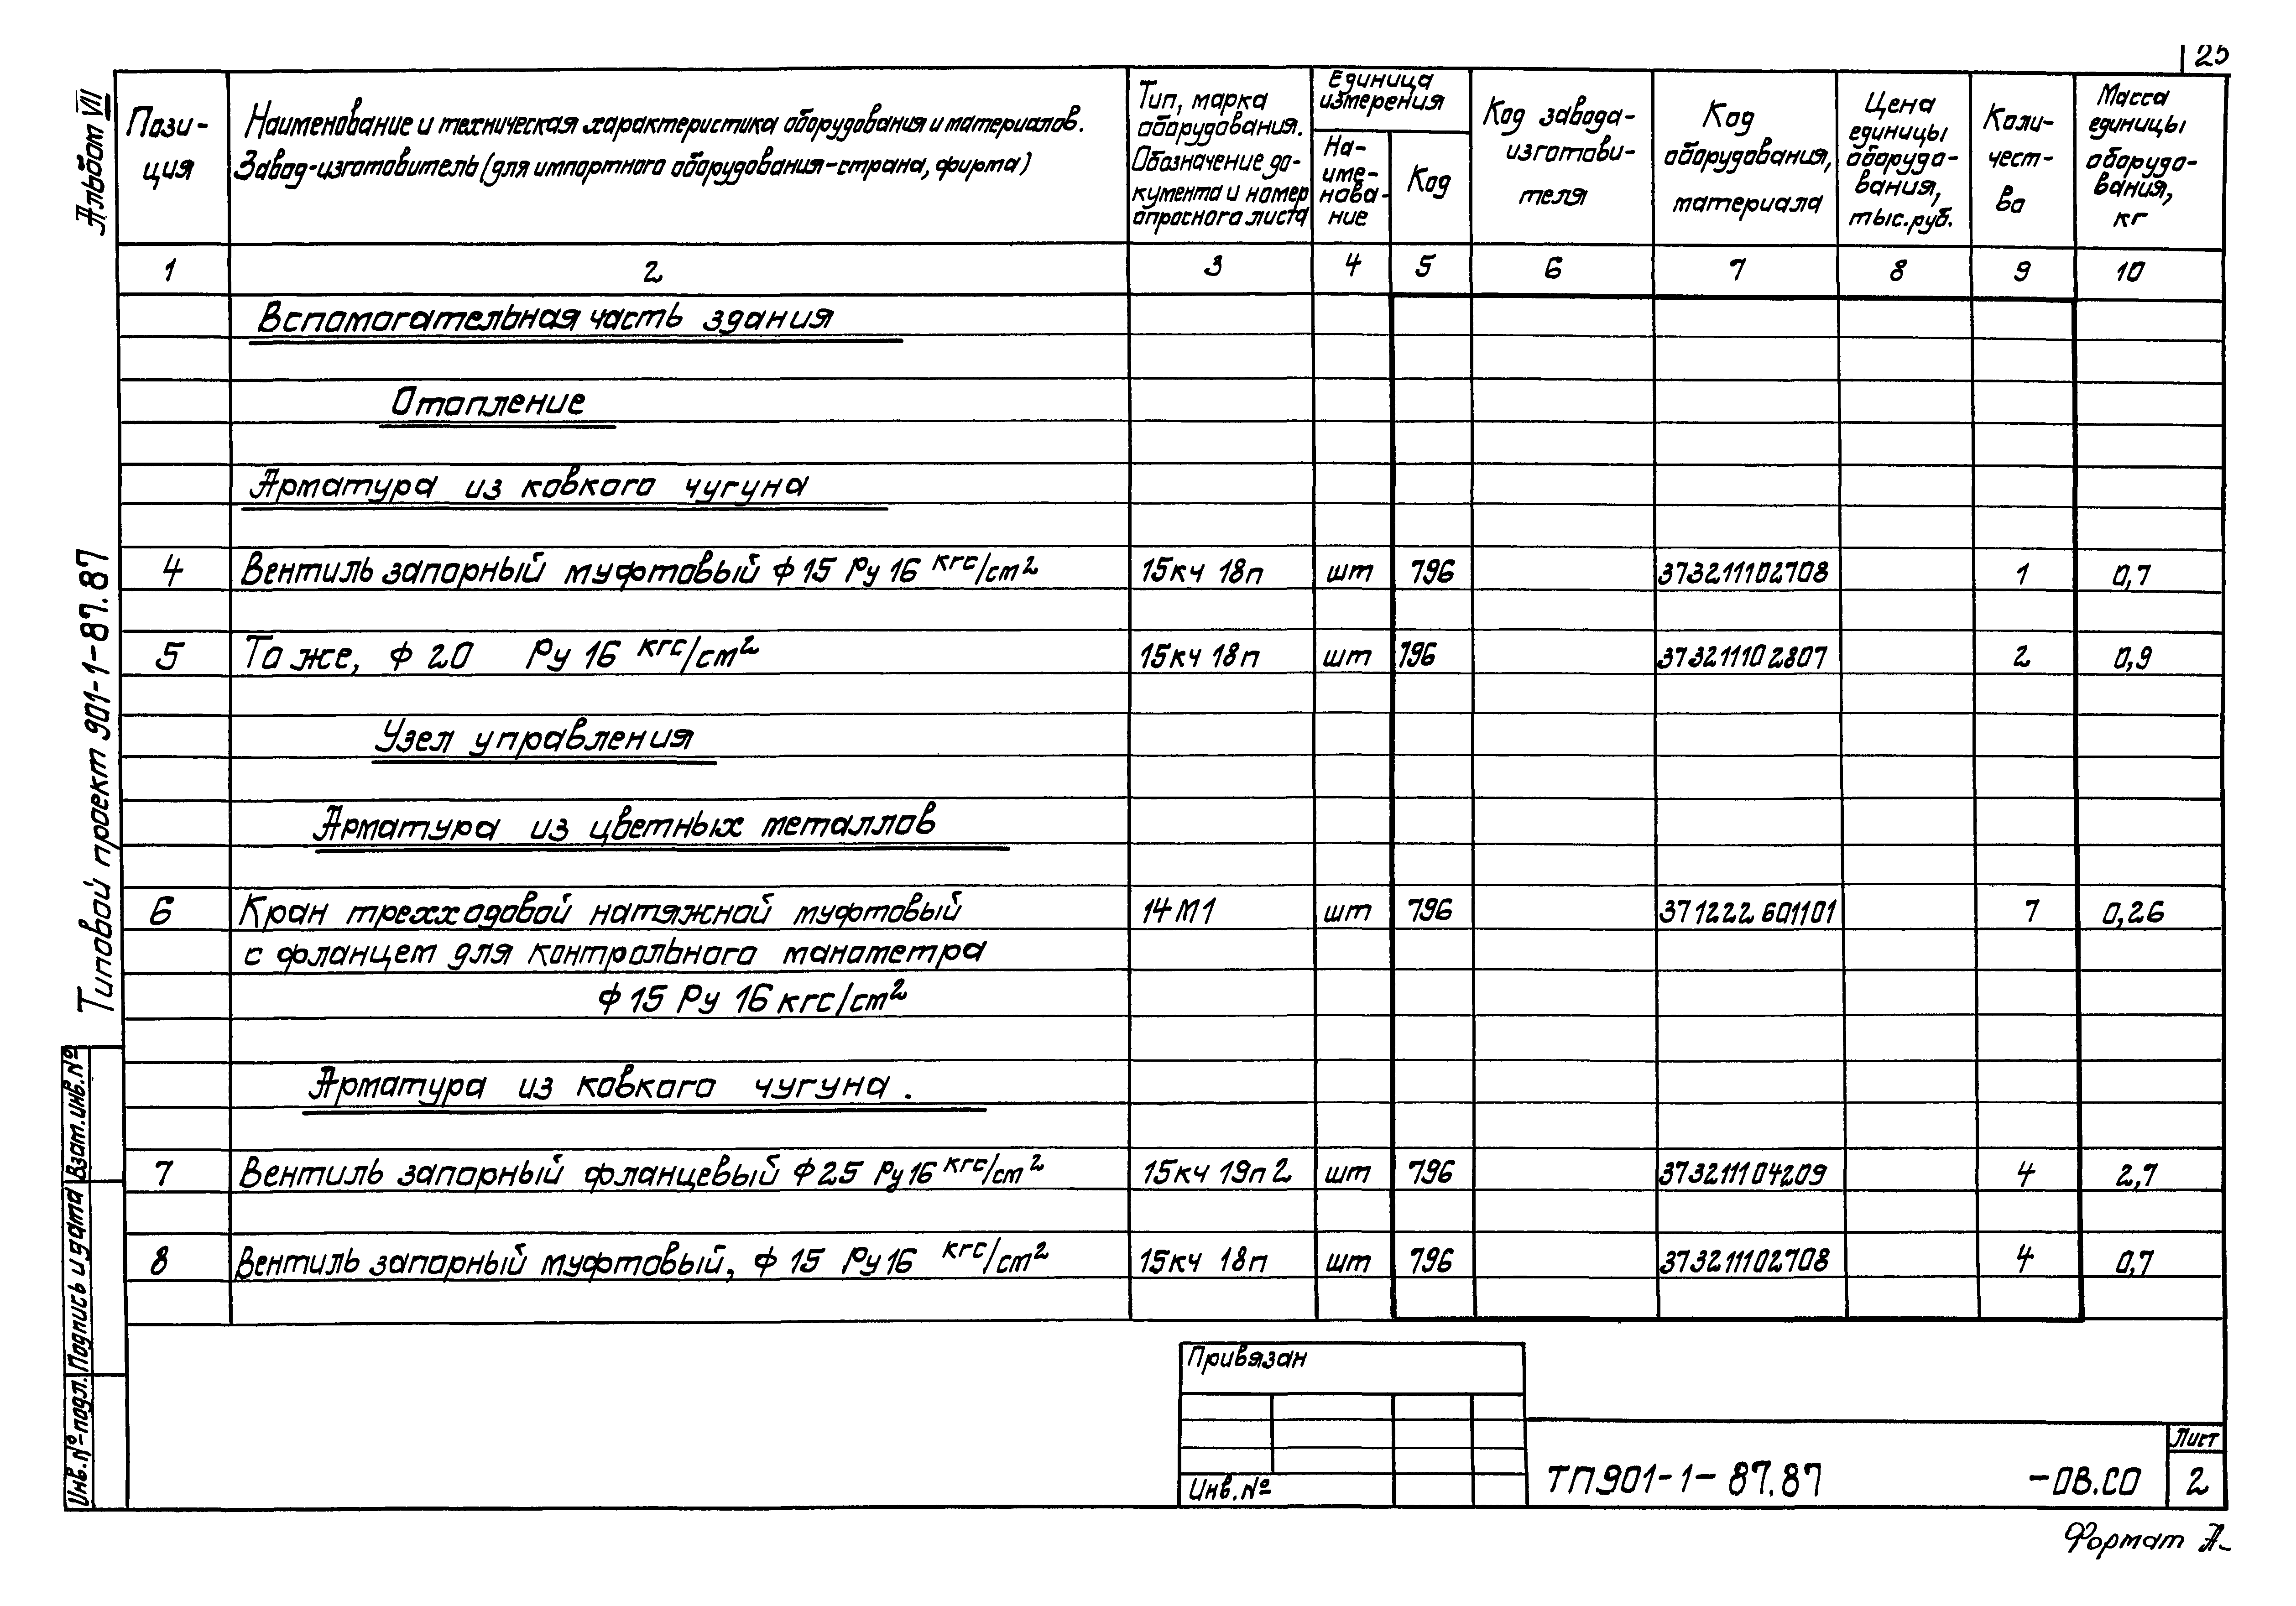 25
Альбом VII
Типовой проект 901-1-87.87
Взам.инв.№
Подпись и дата
Инв.№ подл.
Пози-
ция
Наименование и техническая характеристика оборудования и материалов.
Завод-изготовитель (для импортного оборудования-страна, фирма)
Тип, марка
оборудования.
Обозначение до-
кумента и номер
опросного листа
Единица
измерения
На-
име-
нова-
ние
Код
Код завода-
изготови-
теля
Код
оборудования,
материала
Цена
единицы
оборудо-
вания,
тыс.руб.
Коли-
чест-
во
Масса
единицы
оборудо-
вания,
кг
1 2 3 4 5 6 7 8 9 10
Вспомогательная часть здания
Отопление
Арматура из ковкого чугуна
4 Вентиль запорный муфтовый ф 15 Ру 16 кгс/см² 15кч 18п шт 796 373211102708 1 0,7
5 То же, ф 20 Ру 16 кгс/см² 15кч 18п шт 796 373211102807 2 0,9
Узел управления
Арматура из цветных металлов
6 Кран трехходовой натяжной муфтовый 14М1 шт 796 371222601101 7 0,26
с фланцем для контрольного манометра
ф 15 Ру 16 кгс/см²
Арматура из ковкого чугуна.
7 Вентиль запорный фланцевый ф 25 Ру 16 кгс/см² 15кч 19п2 шт 796 373211104209 4 2,7
8 Вентиль запорный муфтовый, ф 15 Ру 16 кгс/см² 15кч 18п шт 796 373211102708 4 0,7
Привязан
Инв.№
ТП901-1-87.87 -ОВ.СО
Лист
2
Формат А